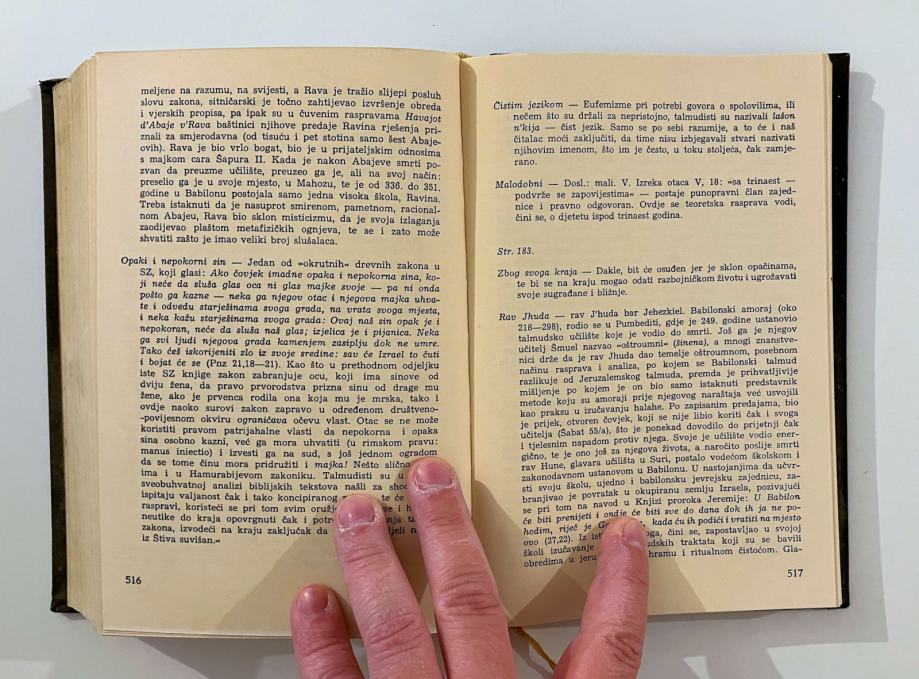 meljene na razumu, na svijesti, a Rava je tražio slijepi posluh
slovu zakona, sitničarski je točno zahtijevao izvršenje obreda
i vjerskih propisa, pa ipak su u čuvenim raspravama Havajot
d'Abaje v'Rava baštinici njihove predaje Ravina rješenja pri-
znali za smjerodavna (od tisuću i pet stotina samo šest Abaje-
ovih). Rava je bio vrlo bogat, bio je u prijateljskim odnosima
s majkom cara Šapura II. Kada je nakon Abajeve smrti po-
zvan da preuzme učilište, preuzeo ga je, ali na svoj način:
preselio ga je u svoje mjesto, u Mahozu, te je od 336. do 351.
godine u Babilonu postojala samo jedna visoka škola, Ravina.
Treba istaknuti da je nasuprot smirenom, pametnom, racional-
nom Abajeu, Rava bio sklon misticizmu, da je svoja izlaganja
zaodijevao plaštom metafizičkih ognjeva, te se i zato može
shvatiti zašto je imao veliki broj slušalaca.
Opaki i nepokorni sin — Jedan od »okrutnih« drevnih zakona u
SZ, koji glasi: Ako čovjek imadne opaka i nepokorna sina, ko-
ji neće da sluša glas oca ni glas majke svoje — pa ni onda
pošto ga kazne — neka ga njegov otac i njegova majka uhva-
te i odvedu starješinama svoga grada, na vrata svoga mjesta,
i neka kažu starješinama svoga grada: Ovaj naš sin opak je i
nepokoran, neće da sluša naš glas; izjelica je i pijanica. Neka
ga svi ljudi njegova grada kamenjem zasiplju dok ne umre.
Tako ćeš iskorijeniti zlo iz svoje sredine: sav će Izrael to čuti
i bojat će se (Pnz 21,18—21). Kao što u prethodnom odjeljku
iste SZ knjige zakon zabranjuje ocu, koji ima sinove od
dviju žena, da pravo prvorodstva prizna sinu od drage mu
žene, ako je prvenca rodila ona koja mu je mrska, tako i
ovdje naoko surovi zakon zapravo u određenom društveno-
-povijesnom okviru ograničava očevu vlast. Otac se ne može
koristiti pravom patrijahalne vlasti da nepokorna i opaka
sina osobno kazni, već ga mora uhvatiti (u rimskom pravu:
manus iniectio) i izvesti ga na sud, s još jednom ogradom
da se tome činu mora pridružiti i majka! Nešto slično
ima i u Hamurabijevom zakoniku. Talmudisti su u
sveobuhvatnoj analizi biblijskih tekstova našli za
ispitaju valjanost čak i tako koncipiranog te će
raspravi, koristeći se pri tom svim oružj
neutike do kraja opovrgnuti čak i
zakona, izvodeći na kraju zaključak da
iz Štiva suvišan.«
516
Čistim jezikom — Eufemizme pri potrebi govora o spolovilima, ili
nečem što su držali za nepristojno, talmudisti su nazivali lašon
n'kija — čist jezik. Samo se po sebi razumije, a to će i naš
čitalac moći zaključiti, da time nisu izbjegavali stvari nazivati
njihovim imenom, što im je često, u toku stoljeća, čak zamje-
rano.
Malodobni — Dosl.: mali. V. Izreka otaca V, 18: »sa trinaest —
podvrže se zapovijestima« — postaje punopravni član zajed-
nice i pravno odgovoran. Ovdje se teoretska rasprava vodi,
čini se, o djetetu ispod trinaest godina.
Str. 183.
Zbog svoga kraja — Dakle, bit će osuđen jer je sklon opačinama,
te bi se na kraju mogao odati razbojničkom životu i ugrožavati
svoje sugrađane i bližnje.
Rav Jhuda — rav J'huda bar Jehezkiel. Babilonski amoraj (oko
218—298), rodio se u Pumbediti, gdje je 249. godine ustanovio
talmudsko učilište koje je vodio do smrti. Još ga je njegov
učitelj Šmuel nazvao »oštroumni« (šinena), a mnogi znanstve-
nici drže da je rav Jhuda dao temelje oštroumnom, posebnom
načinu rasprava i analiza, po kojem se Babilonski talmud
razlikuje od Jeruzalemskog talmuda, premda je prihvatljivije
mišljenje po kojem je on bio samo istaknuti predstavnik
metode koju su amoraji prije njegovog naraštaja već usvojili
kao praksu u izučavanju halahe. Po zapisanim predajama, bio
je prijek, otvoren čovjek, koji se nije libio koriti čak i svoga
učitelja (Šabat 55/a), što je ponekad dovodilo do prijetnji čak
i tjelesnim napadom protiv njega. Svoje je učilište vodio ener-
gično, te je ono još za njegova života, a naročito poslije smrti
rav Hune, glavara učilišta u Suri, postalo vodećom školskom i
zakonodavnom ustanovom u Babilonu. U nastojanjima da učvr-
sti svoju školu, ujedno i babilonsku jevrejsku zajednicu, za-
branjivao je povratak u okupiranu zemlju Izraela, pozivajući
se pri tom na navod u Knjizi proroka Jeremije: U Babilon
će biti prenijeti i ondje će biti sve do dana dok ih ja ne po-
hodim, riječ je kada ću ih podići i vratiti na mjesto
ovo (27,22). Iz čini se, zapostavljao u svojoj
školi izučavanje traktata koji su se bavili
obredima u hramu i ritualnom čistoćom. Gla-
517